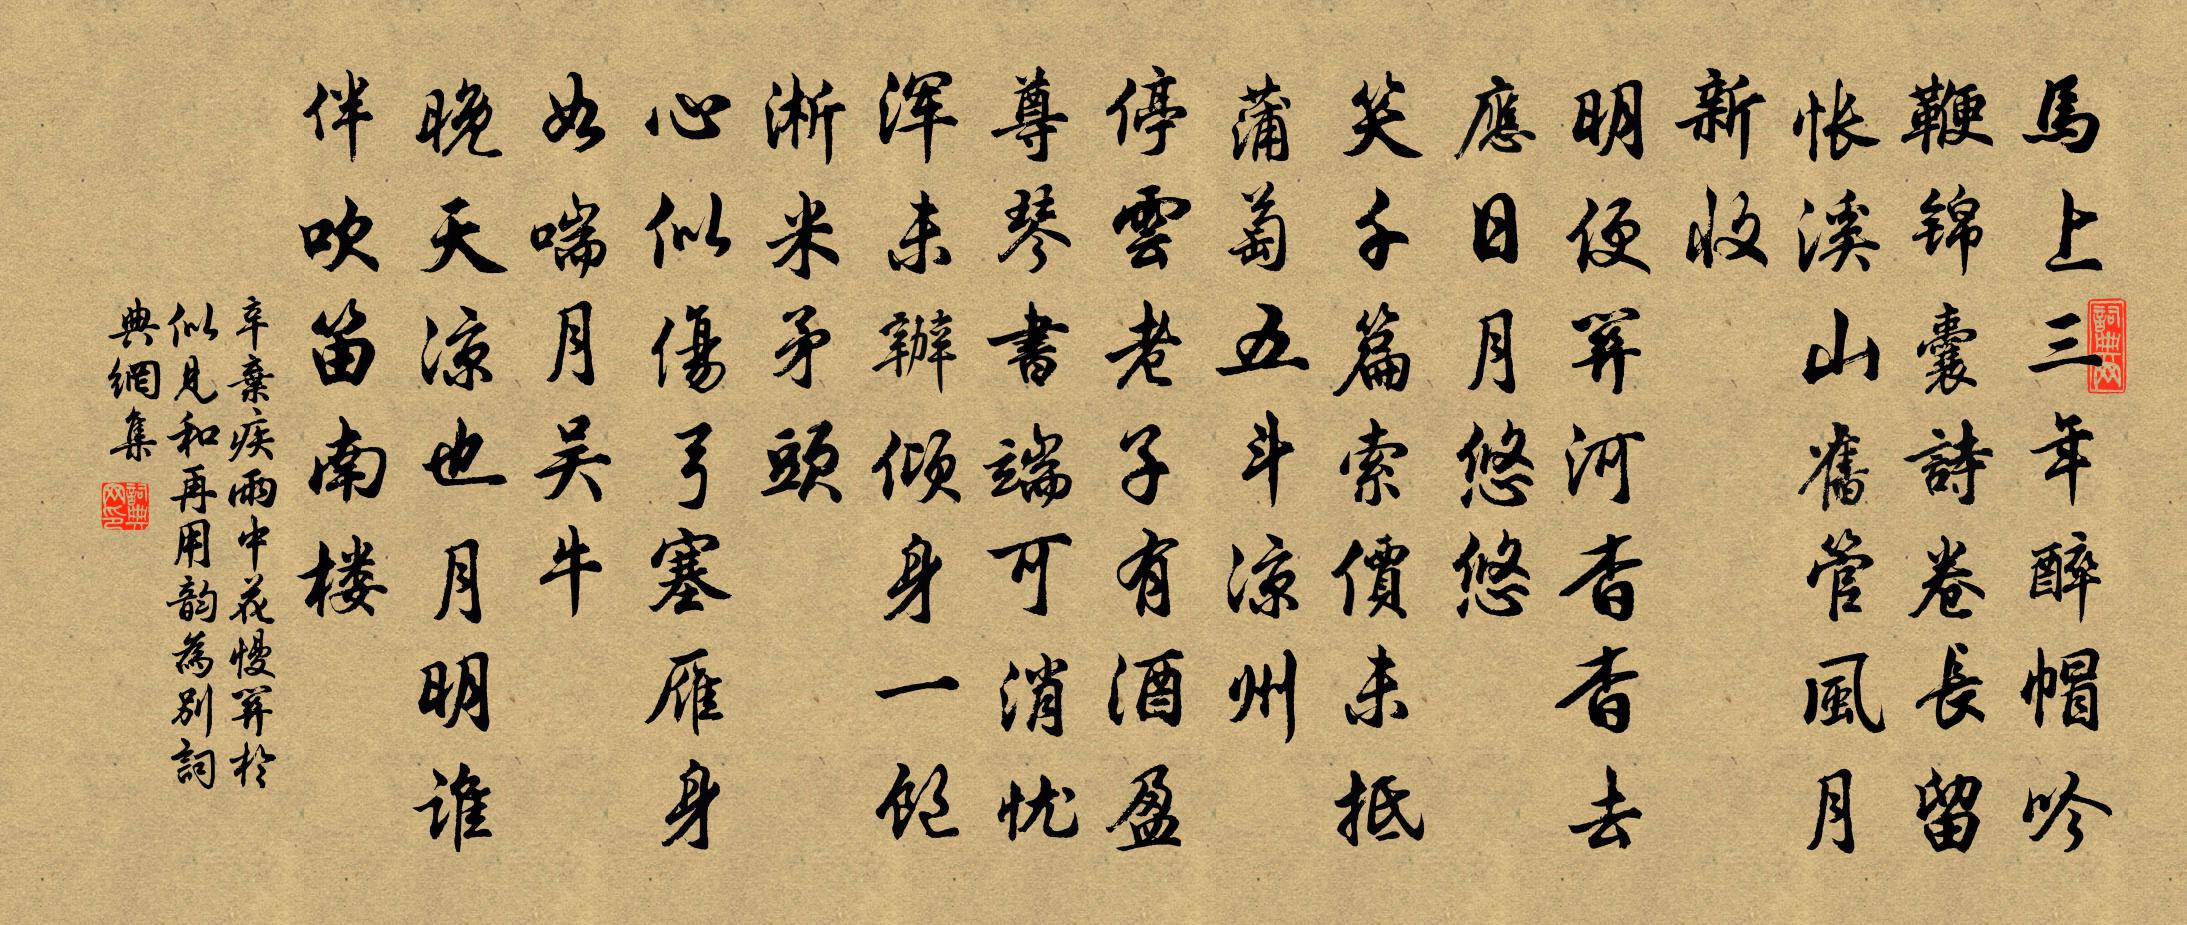 馬上三年醉帽吟
鞭錦囊詩卷長留
悵溪山舊管風月
新收
明便關河杳杳去
應日月悠悠
笑千篇索價未抵
蒲萄五斗涼州
停雲老子有酒盈
尊琴書端可消憂
渾未辦傾身一飽
淅米矛頭
心似傷弓塞雁身
如喘月吳牛
晚天涼也月明誰
伴吹笛南樓
辛棄疾雨中花慢關於
似見和再用韵為別詞
典網集
詞典网
詞典网印